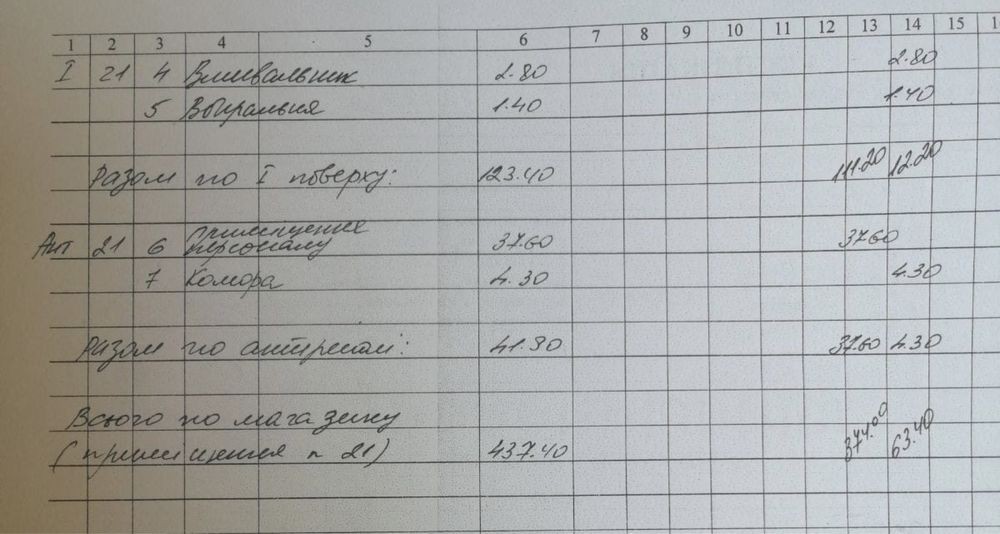 1 2 3 4 5 6 7 8 9 10 11 12 13 14 15
I 21 4 Вмивальник 2.80 2.80
5 Вбиральня 1.40 1.40
Разом по I поверху: 123.40 111.20 12.20
Ант 21 6 приміщення
персоналу 37.60 37.60
7 Комора 4.30 4.30
Разом по антресолі: 41.90 37.60 4.30
Всього по магазину
(приміщення п 21) 437.40 374.00 63.40